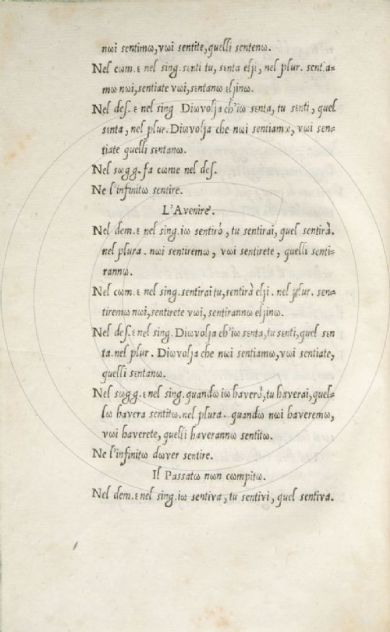 nωi sentimω, vωi sentite, quelli sentenω.
Nel cωm. ε nel sing. senti tu, senta elji, nel plur. senta-
mω nωi, sentiate vωi, sentanω eljinω.
Nel deſ. ε nel sing Diωvolja ch'iω senta, tu senti, quel
senta, nel plur. Diωvolja che nωi sentiamω, vωi sen-
tiate quelli sentanω.
Nel sωgg. fa cωme nel deſ.
Ne l'infinitω sentire.
L'Avenire.
Nel dem. ε nel sing. iω sentirò, tu sentirai, quel sentirà.
nel plura. nωi sentiremω, vωi sentirete, quelli senti-
rannω.
Nel cωm. ε nel sing. sentirai tu, sentirà elji. nel plur. sen-
tiremω nωi, sentirete vωi, sentirannω eljinω.
Nel deſ. ε nel sing. Diωvolja ch'iω senta, tu senti, quel sen
ta. nel plur. Diωvolja che nωi sentiamω, vωi sentiate,
quelli sentanω.
Nel sωgg. ε nel sing. quandω iω haverò, tu haverai, quel-
lω havera sentitω. nel plura. quandω nωi haveremω,
vωi haverete, quelli haverannω sentitω.
Ne l'infinitω dωver sentire.
Il Passatω nωn cωmpitω.
Nel dem. ε nel sing. iω sentiva, tu sentivi, quel sentiva.